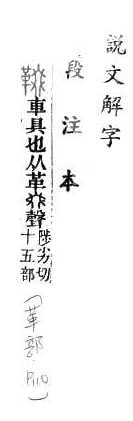 說文解字
段注本
車具也从革叕聲
陟劣切
十五部
(革部 P110)